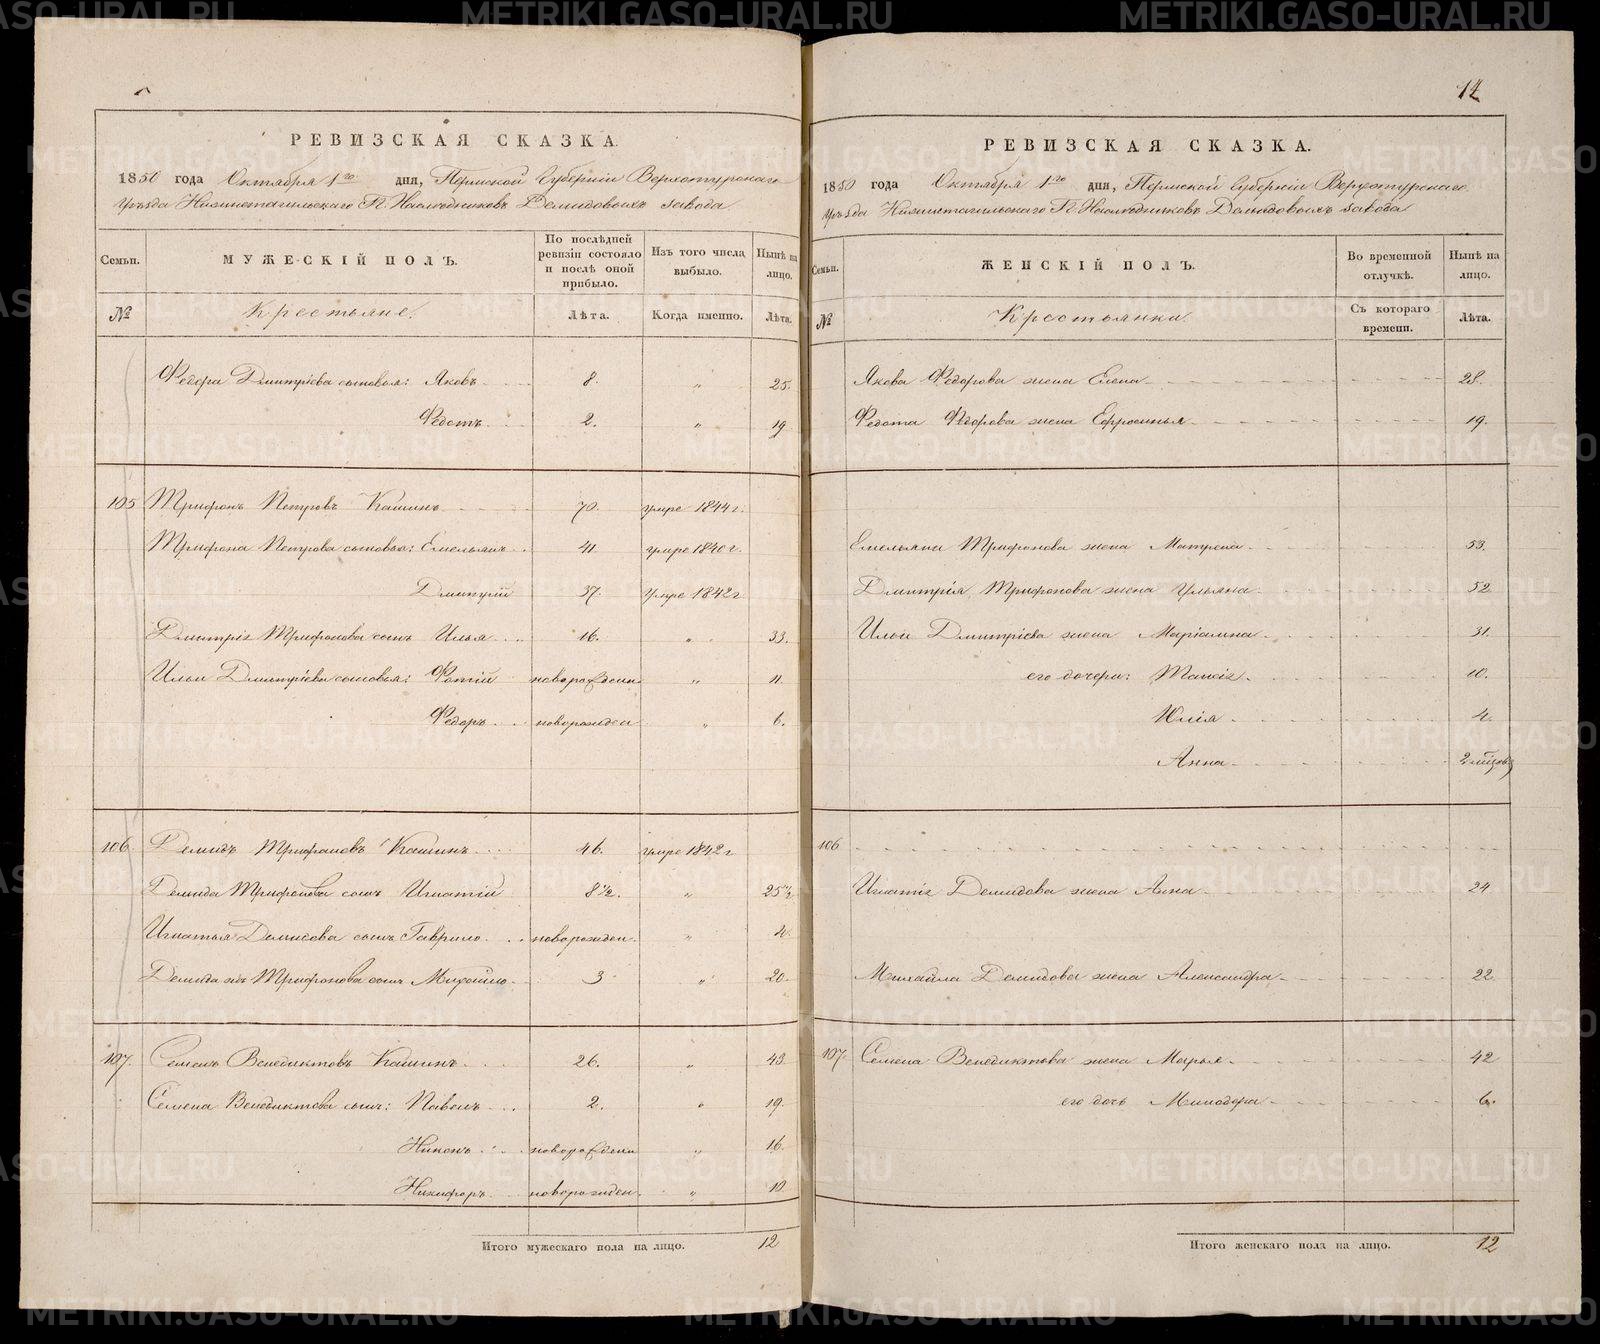 14
РЕВИЗСКАЯ СКАЗКА.
1850 года Октября 1го дня, Пермской Губерніи Верхотурскаго
Уѣзда Нижнетагильскаго Г. Наслѣдниковъ Демидовыхъ завода
Семьи. МУЖЕСКІЙ ПОЛЪ. По послѣдней ревизіи состояло и послѣ оной прибыло. Изъ того числа выбыло. Нынѣ на лицо.
№ Крестьяне. Лѣта. Когда именно. Лѣта.
Федора Дмитріева сыновья: Яковъ 8. " 25.
Федотъ 2. " 19
105 Трифонъ Петровъ Кашинъ 70. умре 1844 г.
Трифона Петрова сыновья: Емельянъ 41. умре 1840 г.
Дмитрій 37. умре 1842 г
Дмитрія Трифонова сынъ Илья 16. " 33.
Ильи Дмитріева сыновья: Фотій новорожден " 11.
Федоръ новорожден " 6.
106. Демидъ Трифоновъ Кашинъ 46. умре 1842 г
Демида Трифонова сынъ Игнатій 8 1/2. " 25 1/2
Игнатья Демидова сынъ Гаврило новорожден. " 4.
Демида жъ Трифонова сынъ Михайло 3 " 20.
107. Семенъ Венедиктовъ Кашинъ 26. " 43.
Семена Венедиктова сын: Павелъ 2. " 19.
Никонъ новорожден " 16.
Никифоръ новорожден. " 10
Итого мужескаго пола на лицо. 12
РЕВИЗСКАЯ СКАЗКА.
1850 года Октября 1го дня, Пермской Губерніи Верхотурскаго
Уѣзда Нижнетагильскаго Г. Наслѣдниковъ Демидовыхъ завода
Семьи. ЖЕНСКІЙ ПОЛЪ. Во временной отлучкѣ. Нынѣ на лицо.
№ Крестьянки. Съ котораго времени. Лѣта.
Якова Федорова жена Елена 28.
Федота Федорова жена Ефросинья 19.
Емельяна Трифонова жена Матрена 53.
Дмитрія Трифонова жена Ульяна 52
Ильи Дмитріева жена Маріамна 31.
его дочери: Таисія 10.
Юлія 4.
Анна 2 мѣсяцъ
106
Игнатія Демидова жена Анна 24
Михайла Демидова жена Александра 22
107. Семена Венедиктова жена Марья 42
его дочь Минодора 6.
Итого женскаго пола на лицо. 12
METRIKI.GASO-URAL.RU